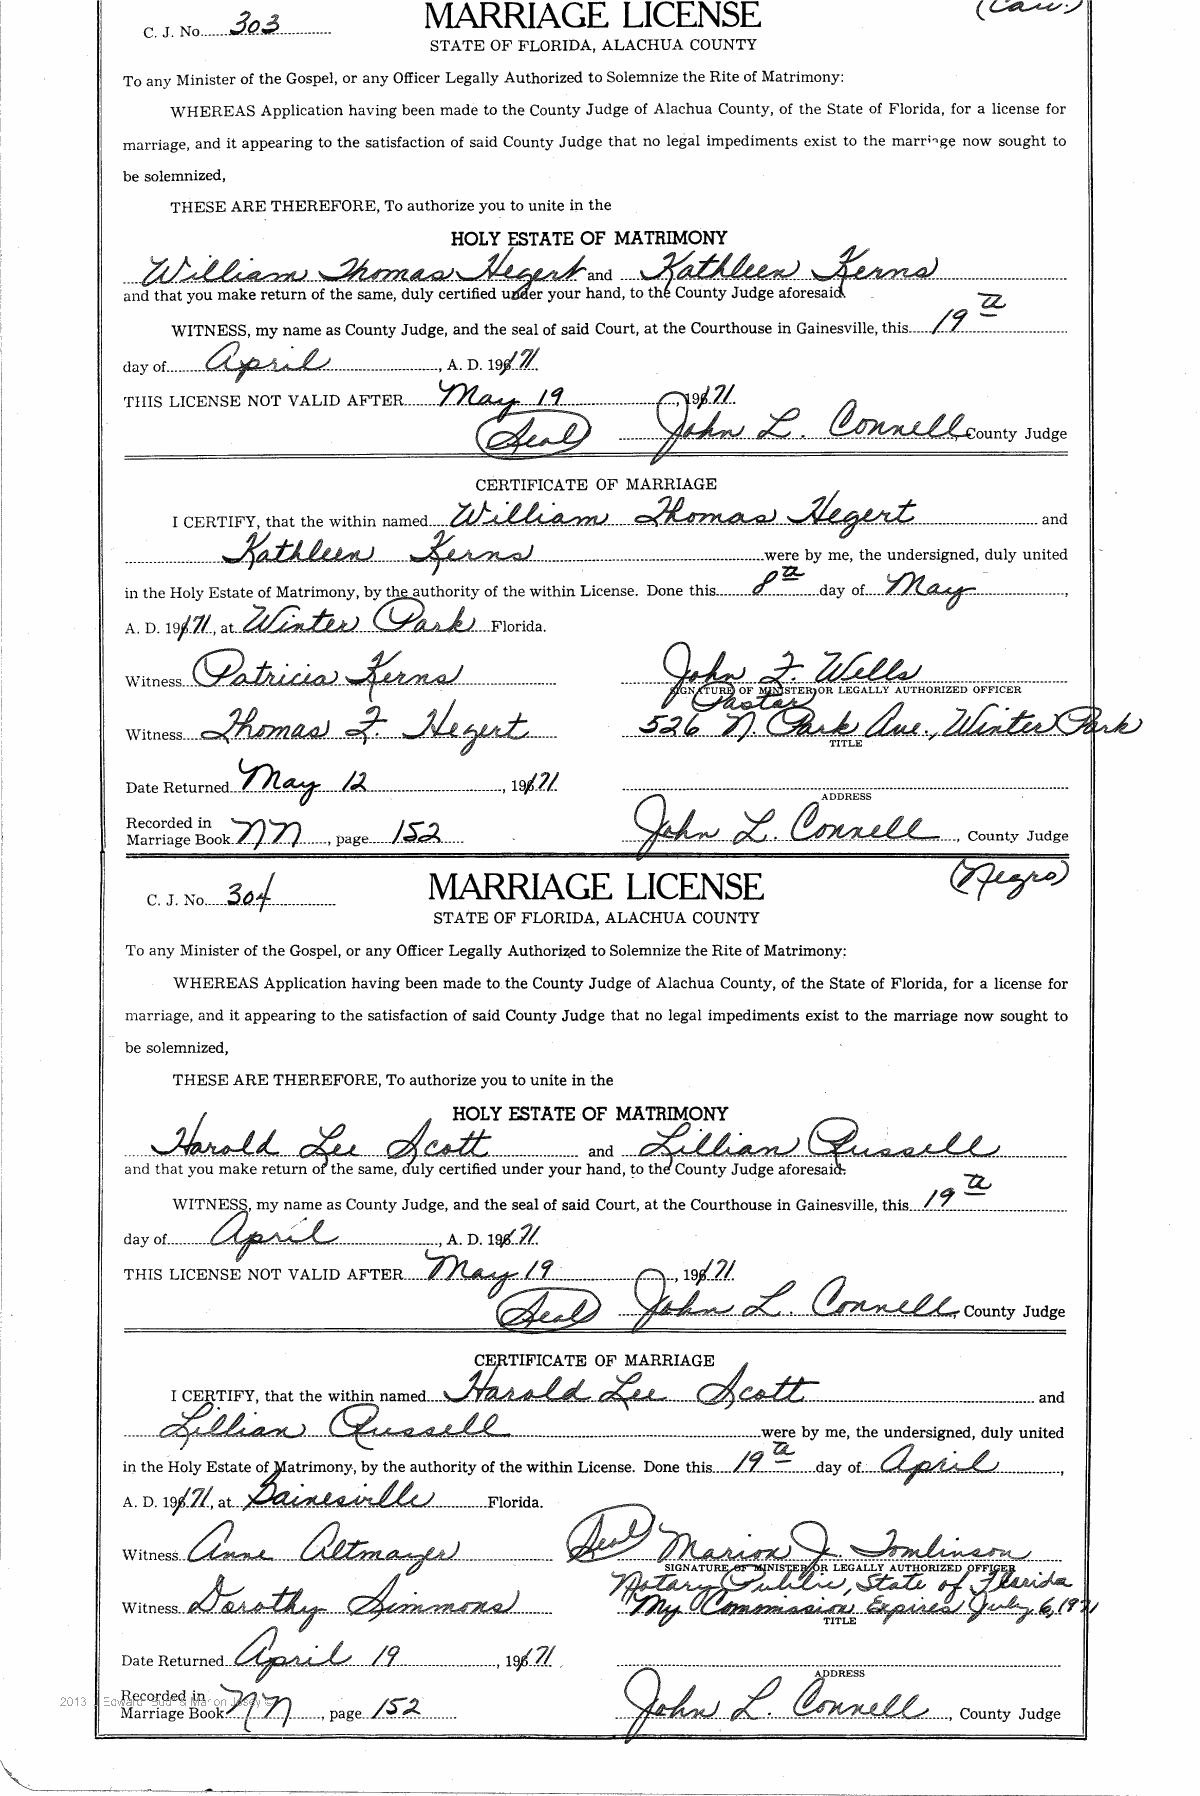 C. J. No. 303
MARRIAGE LICENSE
(Cau.)
STATE OF FLORIDA, ALACHUA COUNTY
To any Minister of the Gospel, or any Officer Legally Authorized to Solemnize the Rite of Matrimony:
WHEREAS Application having been made to the County Judge of Alachua County, of the State of Florida, for a license for
marriage, and it appearing to the satisfaction of said County Judge that no legal impediments exist to the marriage now sought to
be solemnized,
THESE ARE THEREFORE, To authorize you to unite in the
HOLY ESTATE OF MATRIMONY
William Thomas Hegert and Kathleen Kerns
and that you make return of the same, duly certified under your hand, to the County Judge aforesaid.
WITNESS, my name as County Judge, and the seal of said Court, at the Courthouse in Gainesville, this 19th
day of April, A. D. 1971.
THIS LICENSE NOT VALID AFTER May 19, 1971.
(Seal) John L. Connell County Judge
CERTIFICATE OF MARRIAGE
I CERTIFY, that the within named William Thomas Hegert and
Kathleen Kerns were by me, the undersigned, duly united
in the Holy Estate of Matrimony, by the authority of the within License. Done this 8th day of May,
A. D. 1971, at Winter Park Florida.
Witness Patricia Kerns John F. Wells
SIGNATURE OF MINISTER OR LEGALLY AUTHORIZED OFFICER
Pastor
Witness Thomas F. Hegert 526 N. Park Ave., Winter Park
TITLE
Date Returned May 12, 1971.
ADDRESS
Recorded in
Marriage Book NN, page 152 John L. Connell, County Judge
C. J. No. 304
MARRIAGE LICENSE
(Negro)
STATE OF FLORIDA, ALACHUA COUNTY
To any Minister of the Gospel, or any Officer Legally Authorized to Solemnize the Rite of Matrimony:
WHEREAS Application having been made to the County Judge of Alachua County, of the State of Florida, for a license for
marriage, and it appearing to the satisfaction of said County Judge that no legal impediments exist to the marriage now sought to
be solemnized,
THESE ARE THEREFORE, To authorize you to unite in the
HOLY ESTATE OF MATRIMONY
Harold Lee Scott and Lillian Russell
and that you make return of the same, duly certified under your hand, to the County Judge aforesaid.
WITNESS, my name as County Judge, and the seal of said Court, at the Courthouse in Gainesville, this 19th
day of April, A. D. 1971.
THIS LICENSE NOT VALID AFTER May 19, 1971.
(Seal) John L. Connell, County Judge
CERTIFICATE OF MARRIAGE
I CERTIFY, that the within named Harold Lee Scott and
Lillian Russell were by me, the undersigned, duly united
in the Holy Estate of Matrimony, by the authority of the within License. Done this 19th day of April,
A. D. 1971, at Gainesville Florida.
Witness Anne Altmayer (Seal) Marion J. Tomlinson
SIGNATURE OF MINISTER OR LEGALLY AUTHORIZED OFFICER
Notary Public, State of Florida
Witness Dorothy Simmons My Commission Expires July 6, 1971
TITLE
Date Returned April 19, 1971
ADDRESS
Recorded in
Marriage Book NN, page 152 John L. Connell, County Judge
2013